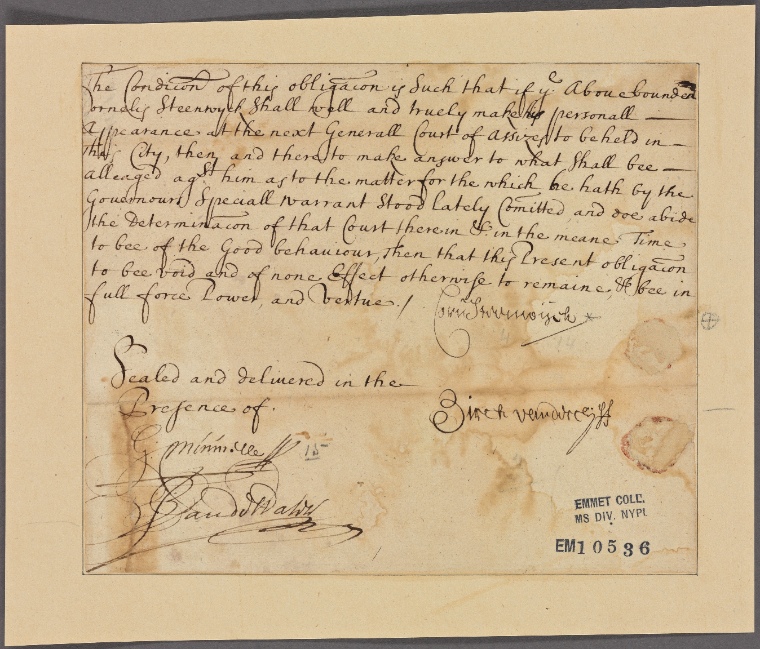 The Condicōn of this obligacōn is Such that if yᵉ Above bounden
Cornelis Steenwyck Shall well and truely make his personall
Appearance at the next Generall Court of Assizes to be held in
this City, then and there to make answer to what Shall bee
alleaged agˢᵗ him as to the matter for the which he hath by the
Governours Speciall warrant Stood lately Comitted, and doe abide
the Determinacōn of that Court therein & in the meane Time
to bee of the Good behaviour, Then that this Present obligacōn
to bee void and of none Effect otherwise to remaine & bee in
full force Power, and Vertue./
Sealed and delivered in the
Presence of.
G: Minvielle
15
EMMET COLL.
MS DIV. NYPL
EM10536